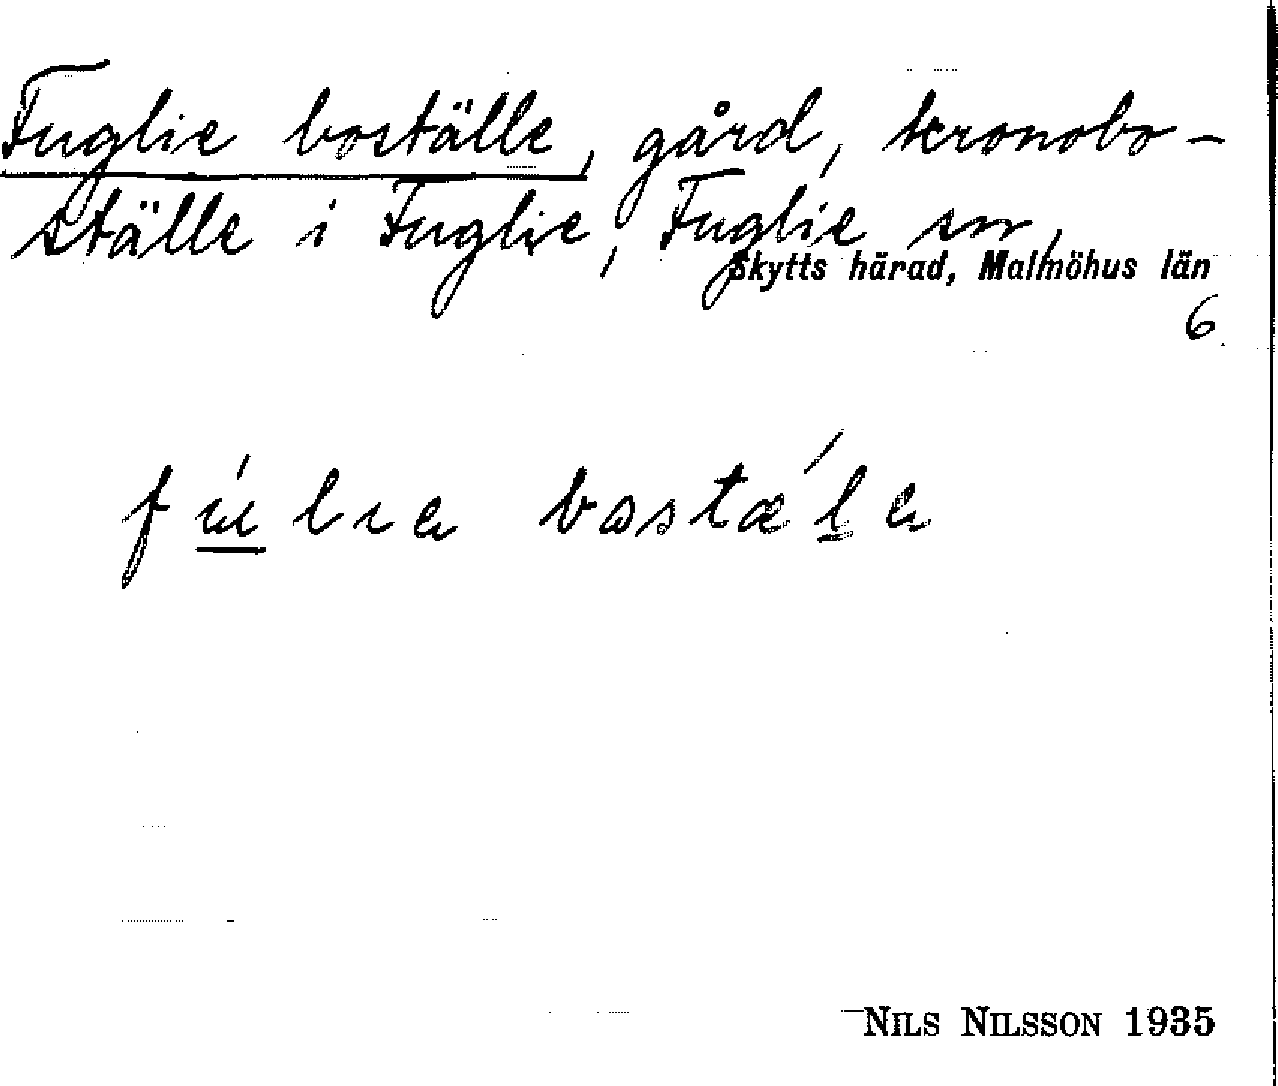 Fuglie boställe, gård, kronobo-
ställe i Fuglie, Fuglie sn,
Skytts härad, Malmöhus län
6
fúlıɐ bostæ´lɐ
NILS NILSSON 1935